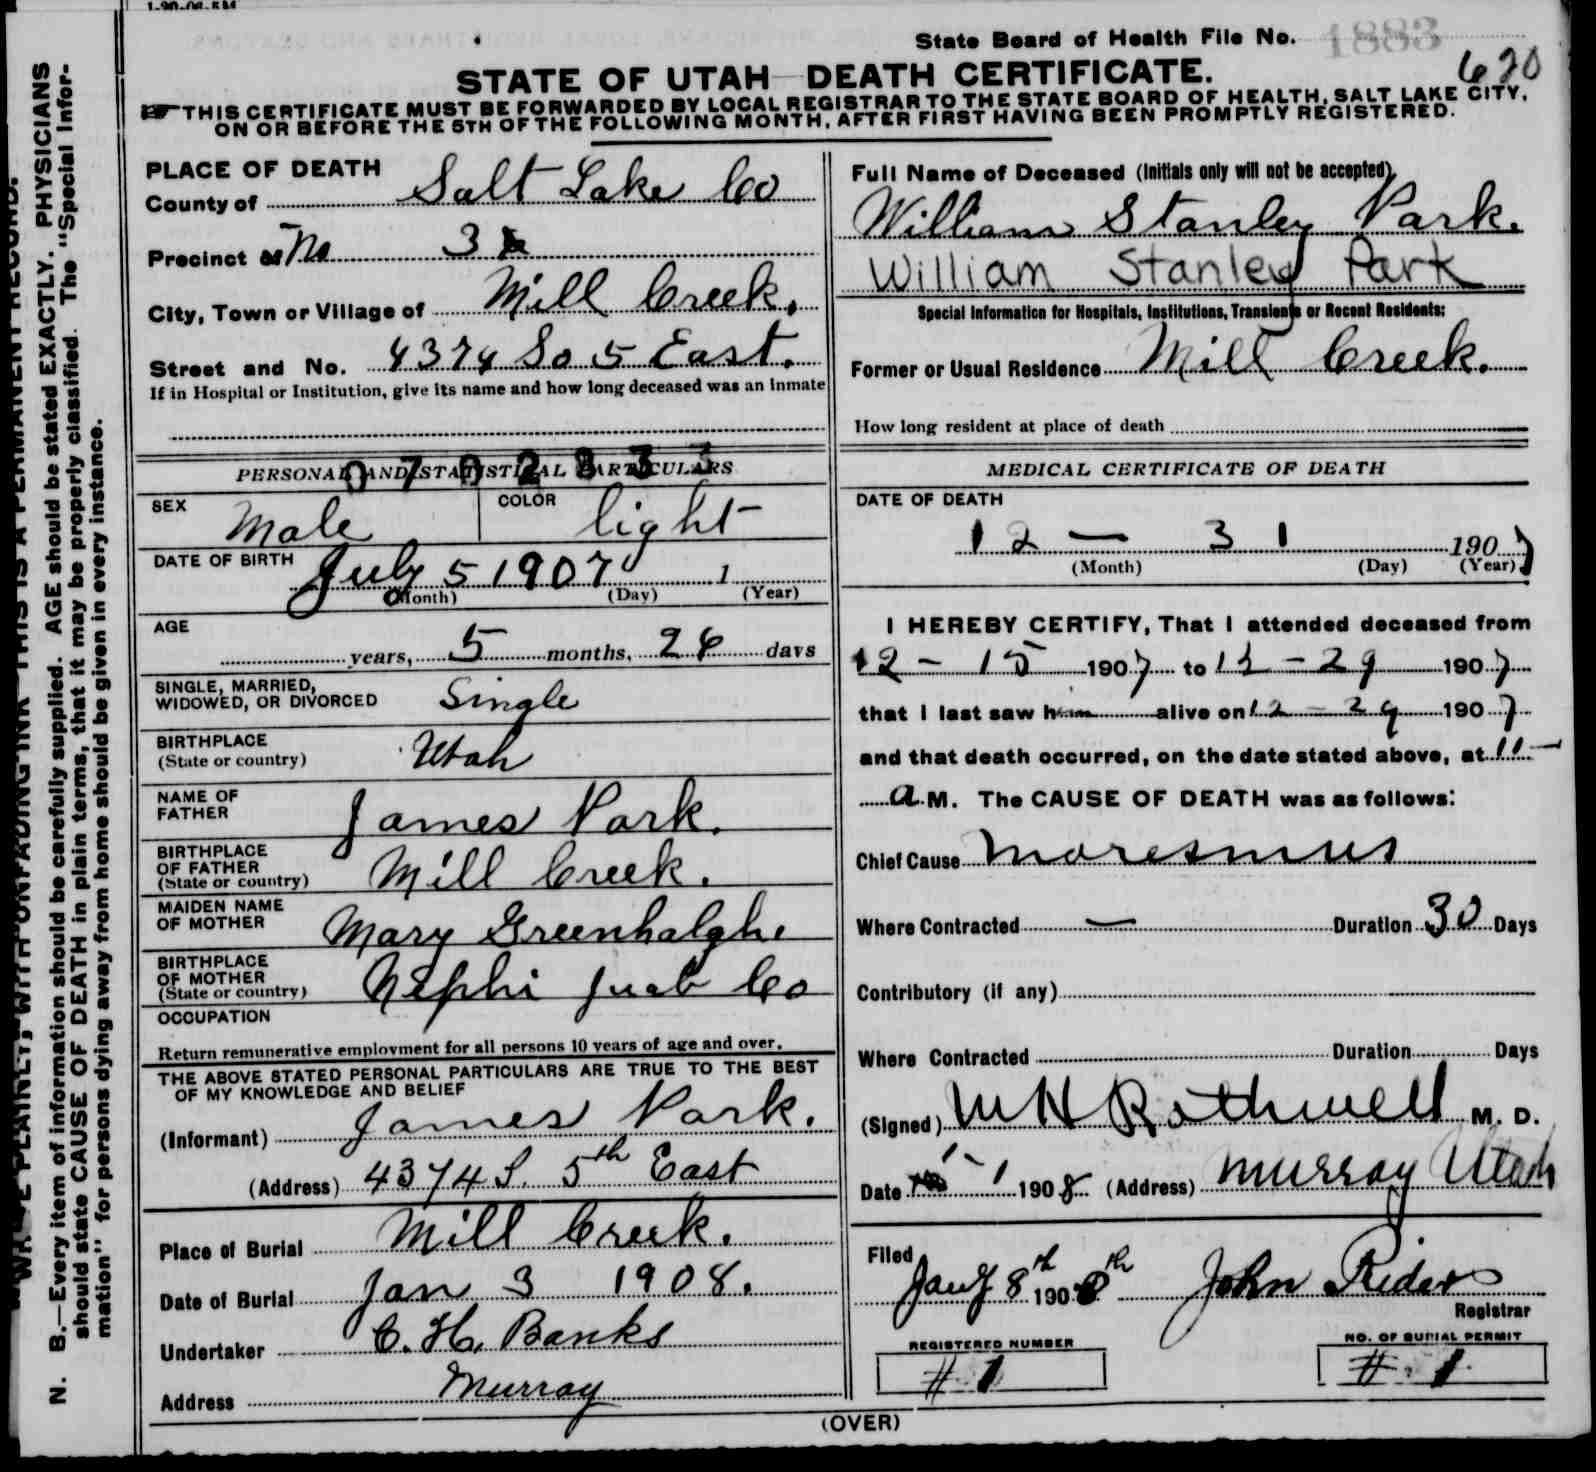 1-20-06-5M
State Board of Health File No. 1883
620
STATE OF UTAH—DEATH CERTIFICATE.
☞ THIS CERTIFICATE MUST BE FORWARDED BY LOCAL REGISTRAR TO THE STATE BOARD OF HEALTH, SALT LAKE CITY,
ON OR BEFORE THE 5TH OF THE FOLLOWING MONTH, AFTER FIRST HAVING BEEN PROMPTLY REGISTERED.
PLACE OF DEATH
County of Salt Lake Co
Precinct of No 3
City, Town or Village of Mill Creek.
Street and No. 4374 So 5 East.
If in Hospital or Institution, give its name and how long deceased was an inmate
0702833
PERSONAL AND STATISTICAL PARTICULARS
SEX Male COLOR light
DATE OF BIRTH July 5 1907 1
(Month) (Day) (Year)
AGE years, 5 months, 26 days
SINGLE, MARRIED,
WIDOWED, OR DIVORCED Single
BIRTHPLACE
(State or country) Utah
NAME OF
FATHER James Park.
BIRTHPLACE
OF FATHER
(State or country) Mill Creek.
MAIDEN NAME
OF MOTHER Mary Greenhalgh.
BIRTHPLACE
OF MOTHER
(State or country) Nephi Juab Co
OCCUPATION
Return remunerative employment for all persons 10 years of age and over.
THE ABOVE STATED PERSONAL PARTICULARS ARE TRUE TO THE BEST
OF MY KNOWLEDGE AND BELIEF
(Informant) James Park.
(Address) 4374 S. 5th East
Place of Burial Mill Creek.
Date of Burial Jan 3 1908.
Undertaker C. H. Banks
Address Murray
Full Name of Deceased (Initials only will not be accepted)
William Stanley Park.
William Stanley Park
Special Information for Hospitals, Institutions, Transients or Recent Residents:
Former or Usual Residence Mill Creek.
How long resident at place of death
MEDICAL CERTIFICATE OF DEATH
DATE OF DEATH
12 — 31 1907
(Month) (Day) (Year)
I HEREBY CERTIFY, That I attended deceased from
12 - 15 1907 to 12 - 29 1907
that I last saw him alive on 12 - 29 1907
and that death occurred, on the date stated above, at 11—
a.M. The CAUSE OF DEATH was as follows:
Chief Cause Moresmus
Where Contracted — Duration 30 Days
Contributory (if any)
Where Contracted Duration Days
(Signed) W H Rothwell M. D.
Date 1-1 1908 (Address) Murray Utah
Filed
Jany 8th 1908th John Riders
Registrar
REGISTERED NUMBER
# 1
NO. OF BURIAL PERMIT
#. 1
(OVER)
WRITE PLAINLY, WITH UNFADING INK—THIS IS A PERMANENT RECORD.
N. B.—Every item of information should be carefully supplied. AGE should be stated EXACTLY. PHYSICIANS
should state CAUSE OF DEATH in plain terms, that it may be properly classified. The "Special Infor-
mation" for persons dying away from home should be given in every instance.